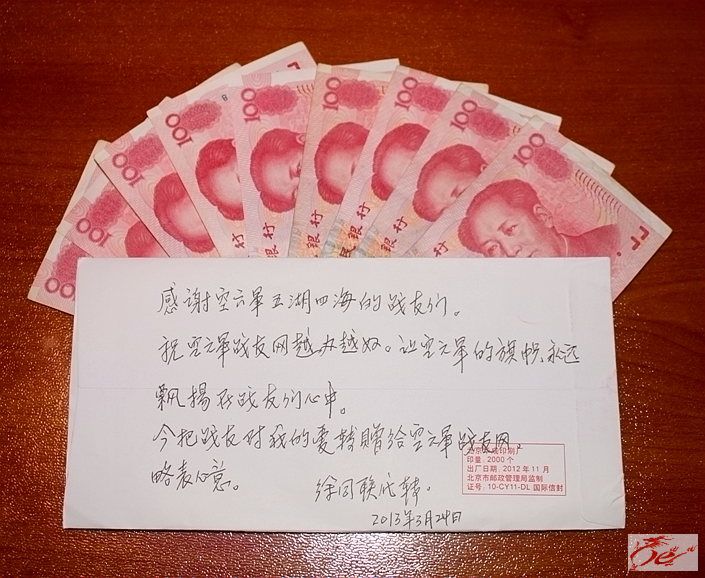 100
100
100
100
100
100
100
100
100
银行
民银行
民银行
行
行
感谢空六军五湖四海的战友们。
祝空六军战友网越办越好。让空六军的旗帜永远
飘揚在战友们心中。
今把战友对我的爱转贈给空六军战友网、
略表心意。
徐同联代转.
2013年3月24日
印量: 2000 个
出厂日期: 2012 年 11 月
北京市邮政管理局监制
证号: 10-CY11-DL 国际信封